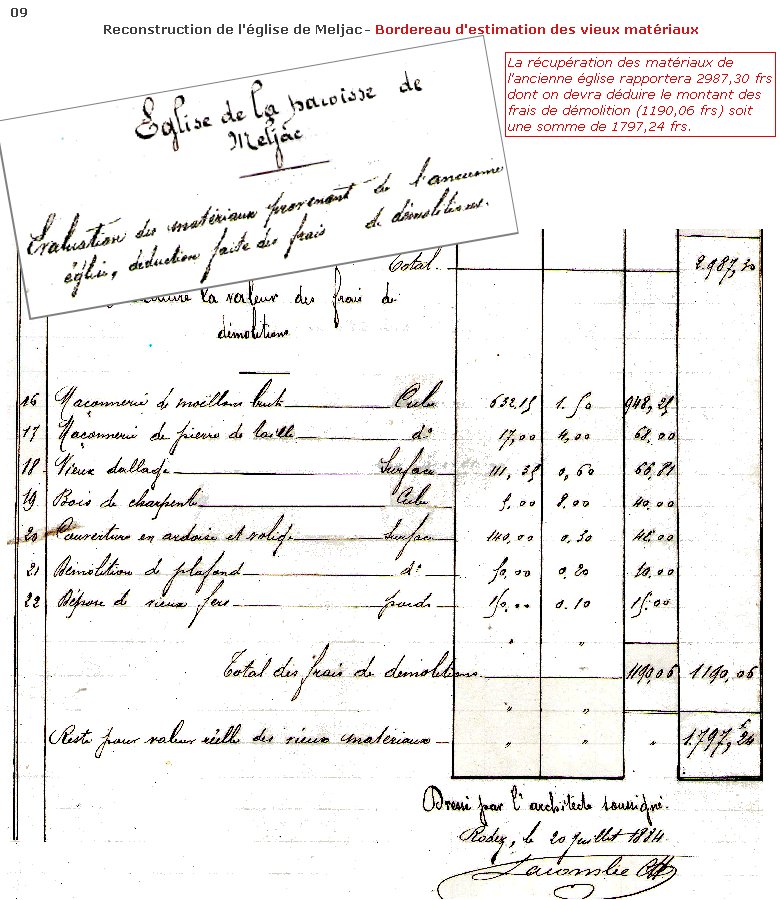 09
Reconstruction de l'église de Meljac - Bordereau d'estimation des vieux matériaux
La récupération des matériaux de
l'ancienne église rapportera 2987,30 frs
dont on devra déduire le montant des
frais de démolition (1190,06 frs) soit
une somme de 1797,24 frs.
Eglise de la paroisse de
Meljac
Evaluation des matériaux provenant de l'ancienne
église, déduction faite des frais de démolitions.
Total 2.987,30
la valeur des frais de
démolitions
16 Maçonnerie de moellons bruts Cube 632.15 1.50 948,25
17 Maçonnerie de pierre de taille do 17,00 4,00 68.00
18 Vieux dallage Surface 111,35 0,60 66,81
19 Bois de charpente Cube 5.00 8.00 40.00
20 Couverture en ardoise et volige Surface 140,00 0,30 42.00
21 Démolition de plafond do 50,00 0.20 10.00
22 Dépose de vieux fers poids 150,00 0.10 15.00
" "
Total des frais de démolitions 1190,06 1.190,06
" "
Reste pour valeur réelle des vieux matériaux " " " 1.797,24
Dressé par l'architecte soussigné.
Rodez, le 20 juillet 1884